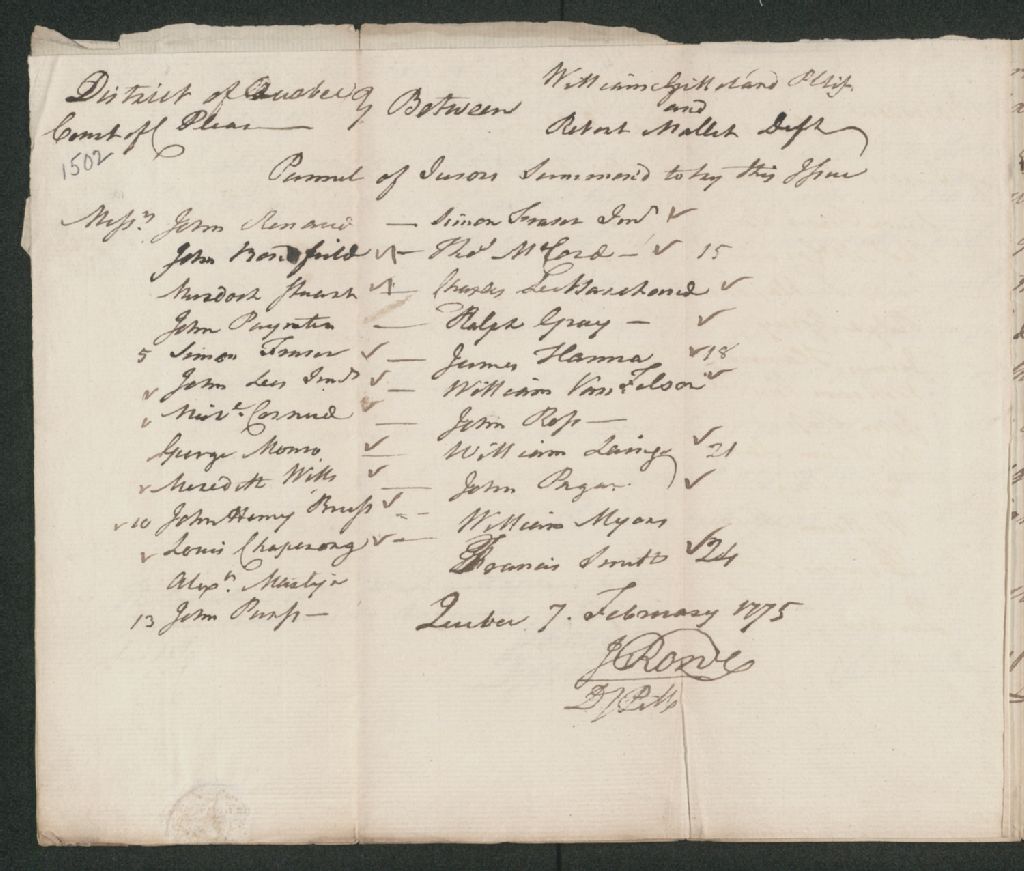 District of Quebec } Between William Gilliland Pltif
and
Court of C Pleas Robert Mallet Deft
1502
Pannel of Jurors Summon'd to try this Issue
Messrs John Renaud — Simon Fraser Junr
John Bondfield — Thos McCord — 15
Murdoch Stuart — Charles LeMarchand
John Paynter — Ralph Gray —
5 Simon Fraser — James Hanna 18
John Lees Junr — William VanFelson
Michl Cornud — John Ross —
George Monro — William Laing 21
Meredith Wills — John Pagan
10 John Henry Bruss — William Myars
Louis Chaperong — Francis Smith 24
Alexr
13 John Purss —
Quebec 7. February 1775
J Rowe